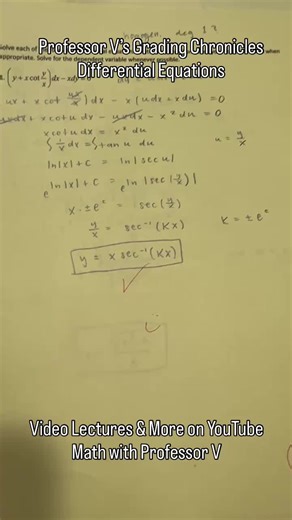 homogen, deg 1?
Professor V's Grading Chronicles
Differential Equations
solve each of
when
appropriate. Solve for the dependent variable whenever possible.
(y + x cot y/x) dx − x dy = 0
ux + x cot (ux/x)) dx − x (u dx + x du) = 0
uxdx + x cot u dx − uxdx − x² du = 0
x cot u dx = x² du
u = y/x
∫ 1/x dx = ∫ tan u du
ln|x| + C = ln|sec u|
e^(ln|x| + C) = e^(ln|sec(y/x)|)
x · ±e^c = sec(y/x)
y/x = sec⁻¹(Kx)
K = ±e^c
y = x sec⁻¹(Kx)
Video Lectures & More on YouTube
Math with Professor V